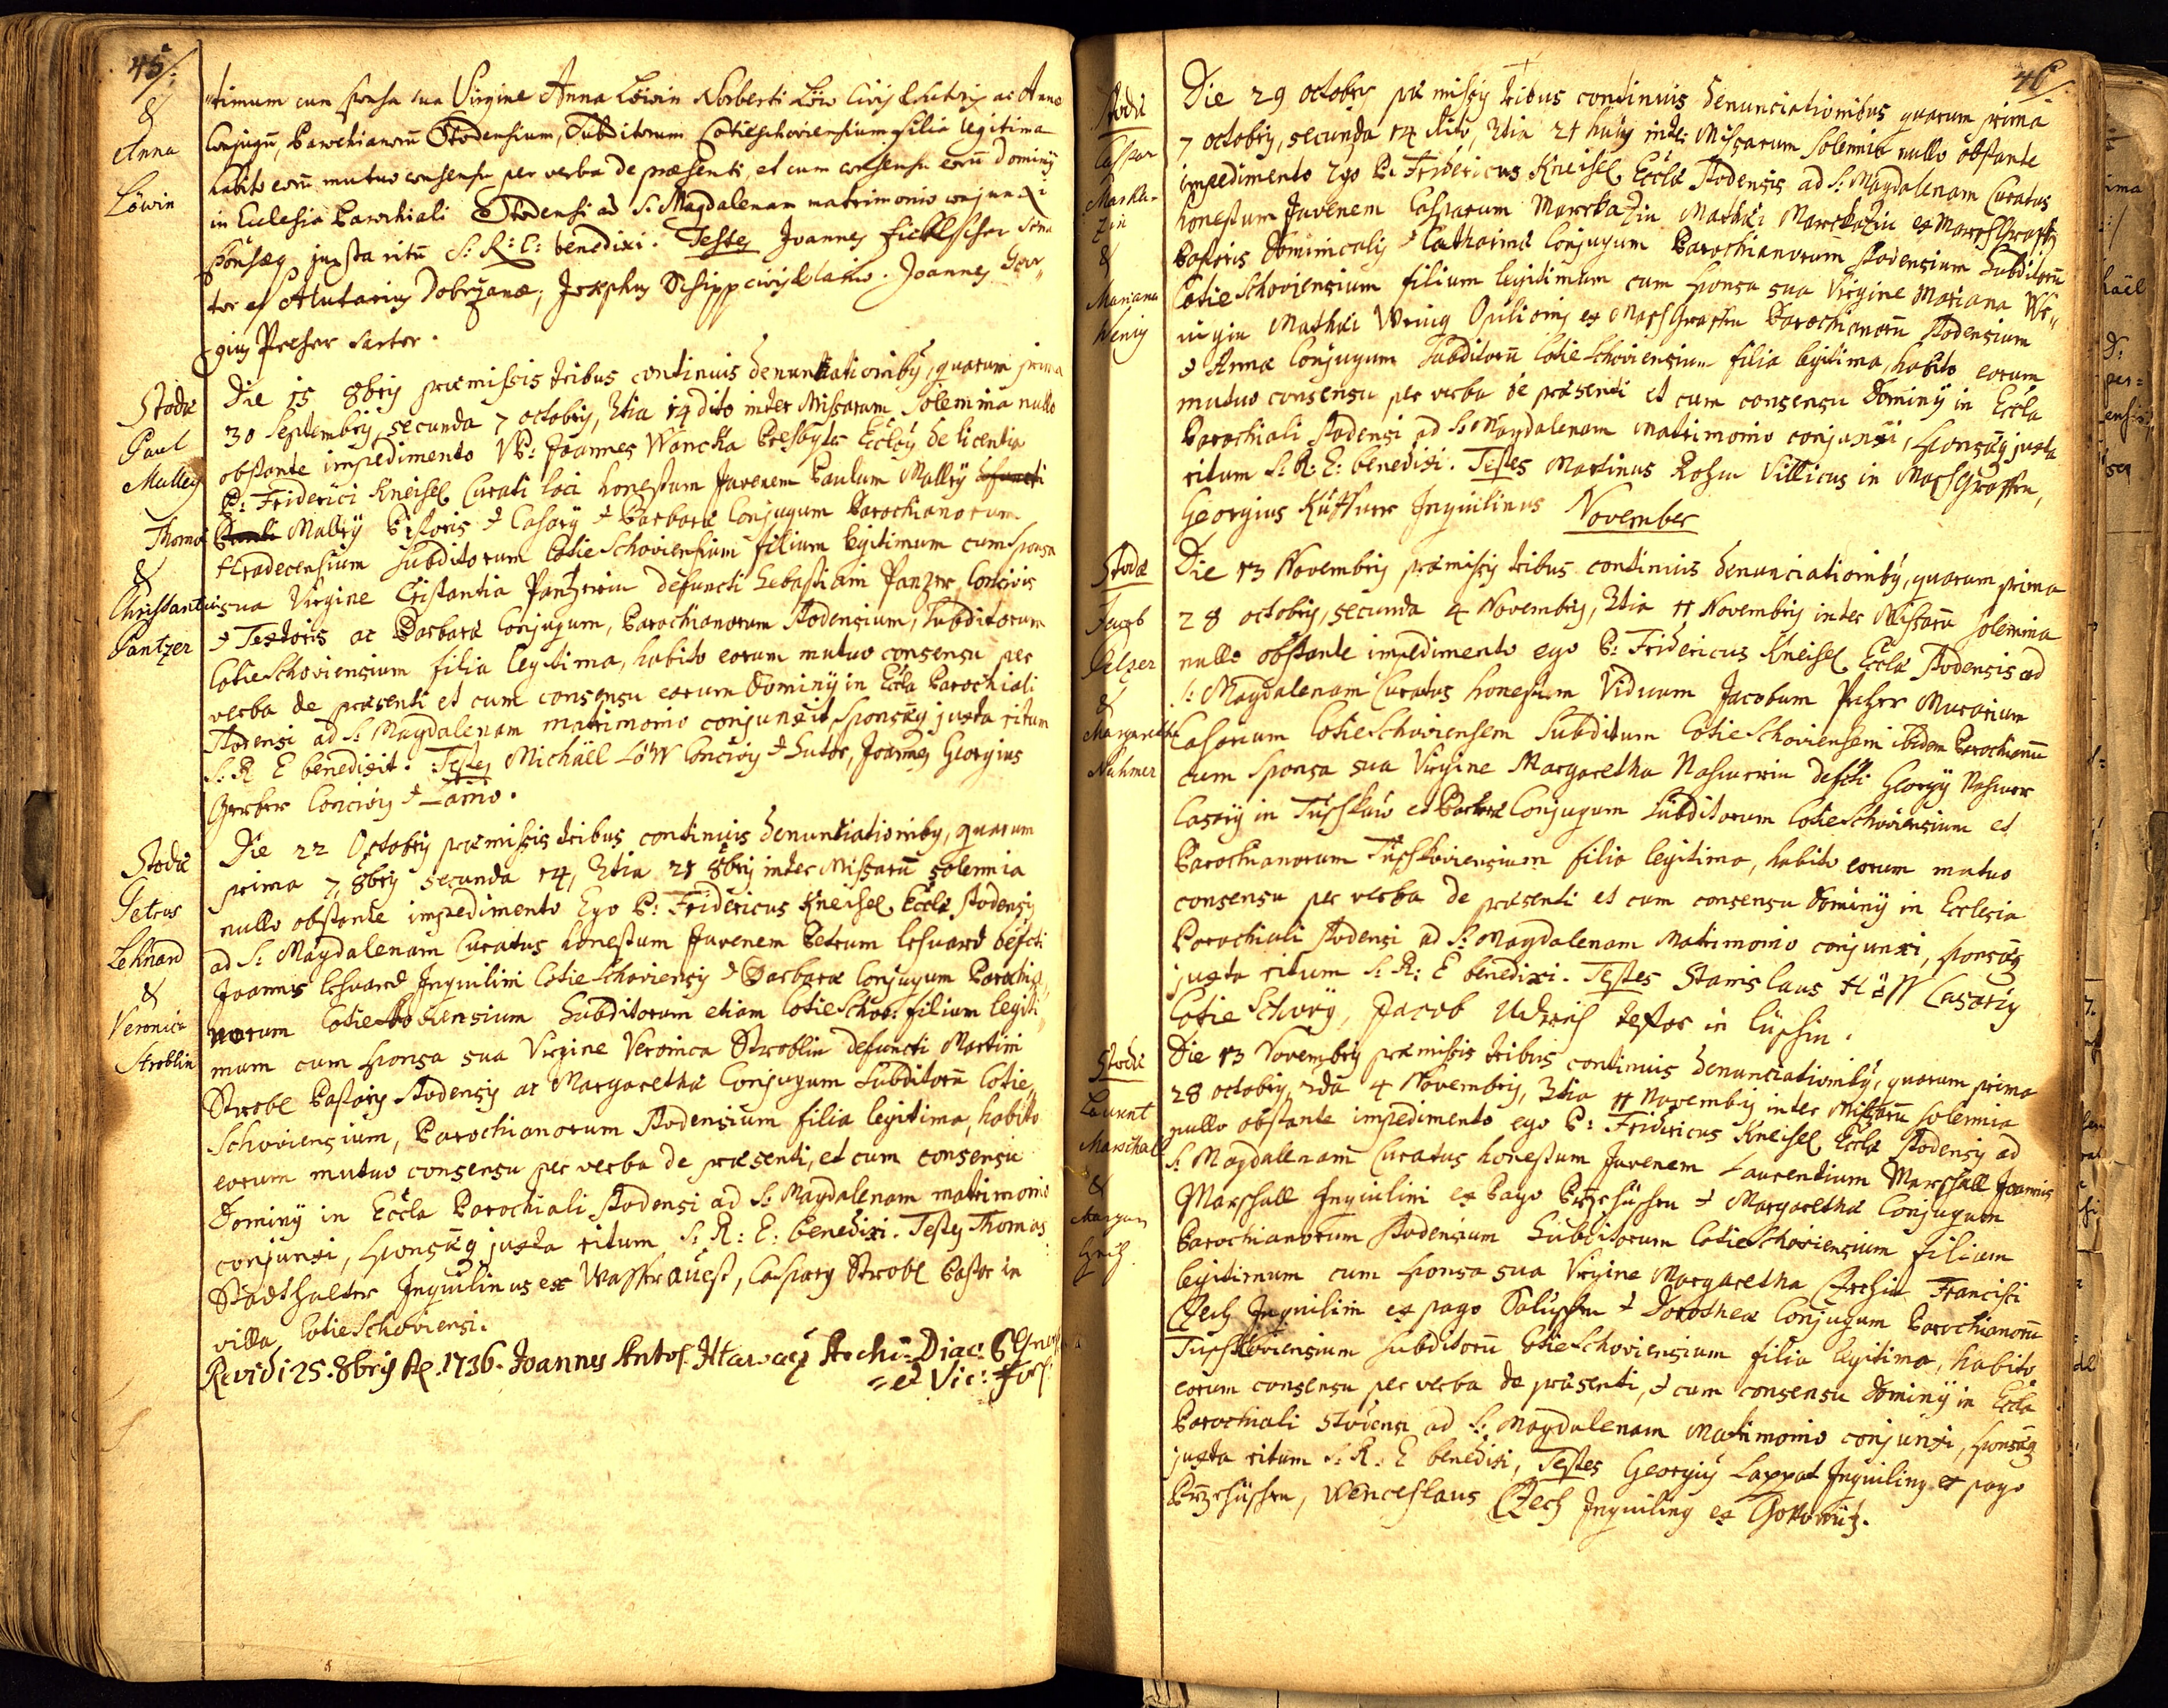 45
&
Anna
Löwin
timum cum sponsa sua Virgine Anna Löwin Norberti Löw Civis & Sutoris ac Annæ
Conjugũ, Parochianorũ Stodensium, Subditorum Cotieschoviensium filia legitima
habito eorũ mutuo consensu per verba de præsenti, et cum consensu eorũ Dominÿ
in Ecclesia Parochiali Stodensi ad S: Magdalenam matrimonio conjunxi
Sponsosq juxta ritũ S: R: E: benedixi. Testes Joannes
tor et Alutarius Dobržanæ, Josephus Schipp civis & Lanio. Joannes Geor
gius Preher Sartor.
Stodæ
Paul
Malley
Thomæ
&
Christantia
Pantzer
Die 15 8bris præmissis tribus continuis denuntiationibq, quarum prima
30 Septembris, secunda 7 octobris, 3tia 14 dito inter Missarum Solemnia nullo
obstante impedimento VP: Joannes Wancka Presbyter Eccl de licentia
P: Friderici Kneisel Curati loci honestum Juvenem Paulum Mallÿ defuncti
Pauli Mallÿ Pistoris & Casarÿ & Barbaræ Conjugum Parochianorum
Hradecensium Subditorum Cotieschoviensium filium legitimum cum sponsa
sua Virgine Christantia Pantzerin defuncti Sebastiani Panzer, Concivis
& Textoris ac Barbaræ Conjugum, Parochianorum Stodensium, Subditorum
Cotieschoviensium filia legitima, habito eorum mutuo consensu per
verba de præsenti et cum consensu eorum Dominÿ in Eccla Parochiali
Stodensi ad S: Magdalenam matrimonio conjunxit Sponsosq juxta ritum
S: R E benedixit. Testes Michäel Löw Concivis & Sutor, Joannes Georgius
Gerber Concivis & Lanio.
Stodæ
Petrus
Lehnard
&
Veronica
Stroblin
Die 22 Octobris præmissis tribus continuis denuntiationibq, quarum
prima 7 8bris secunda 14, 3tia 21 8bris inter Missarũ solemnia
nullo obstante impedimento Ego P: Fridericus Kneisel Eccle Stodensis
ad S: Magdalenam Curatus honestum Juvenem Petrum Lehnard defcti
Joannis Lehnard Inquilini Cotieschoviensis & Barbaræ Conjugum Parochia
norum Cotieschoviensium Subditorum etiam Cotieschov: filium legiti
mum cum sponsa sua Virgine Veronica Stroblin defuncti Martini
Strobl Pastoris Stodensis ac Margarethæ Conjugum Subditorũ Cotie
Schoviensium, Parochianorum Stodensium filia legitima, habito
eorum mutuo consensu per verba de præsenti, et cum consensu
Dominÿ in Eccla Parochiali Stodensi ad S: Magdalenam matrimonio
conjunxi, sponsosq juxta ritum S: R: E: benedixi. Testes Thomas
Stadthalter Inquilinus ex Wasseraüest, Casparus Strobl Pastor in
villa Cotieschoviensi.
Revidi 25. 8bris A. 1736. Joannes Anton Archi-Diac:
et Vic: For:
46
Stodæ
Caspar
Marska-
zin
&
Mariana
Wenig
Die 29 octobris præmissis tribus continuis denunciationibus quarum prima
7 octobris, secunda 14 dito, 3tia 21 huiq inter Missarum Solemnia nullo obstante
impedimento Ego P: Fridericus Kneisel Eccle Stodensis ad S: Magdalenam Curatus
honestum Juvenem Casparum Marskazin Mathæi Marskazin ex
Pastoris Dominicalis & Catharinæ Conjugum Parochianorum Stodensium Subditorũ
Cotieschoviensium filium legitimum cum sponsa sua Virgine Mariana We
nigin Mathæi Wenig Opilionis ex Parochianorũ Stodensium
& Annæ Conjugum Subditorũ Cotieschoviensium filia legitima, habito eorum
mutuo consensu per verba de præsenti et cum consensu Dominÿ in Eccla
Parochiali Stodensi ad S: Magdalenam matrimonio conjunxi, sponsosq juxta
ritum S: R: E: benedixi. Testes Martinus Rohm Villicus in
Georgius Inquilinus
November
Stodæ
Jacob
Pelzer
&
Margaretha
Nahmer
Die 13 Novembris præmissis tribus continuis denunciationibq, quarum prima
28 octobris, secunda 4 Novembris, 3tia 11 Novembris inter Missarũ solemnia
nullo obstante impedimento ego P: Fridericus Kneisel Eccle Stodensis ad
S: Magdalenam Curatus honestum Viduum Jacobum Pelzer Murarium
Casarum Cotieschoviensem Subditum Cotieschoviensem ibidem Parochianũ
cum sponsa sua Virgine Margaretha defcti Georgÿ
Casarÿ in Tuschkau et Barbaræ Conjugum Subditorum Cotieschoviensium et
Parochianorum Tuschkoviensium filia legitima, habito eorum mutuo
consensu per verba de præsenti et cum consensu Dominÿ in Ecclesia
Parochiali Stodensi ad S: Magdalenam Matrimonio conjunxi, sponsosq
juxta ritum S: R: E benedixi. Testes Stanislaus Casariq
Cotieschovÿ, Jacob textor in
Stodæ
Laurent
Marschal
&
Margar
Die 13 Novembris præmissis tribus continuis denunciationibq, quarum prima
28 octobris, 2da 4 Novembris, 3tia 11 Novembris inter Missarũ solemnia
nullo obstante impedimento ego P: Fridericus Kneisel Eccle Stodensis ad
S: Magdalenam Curatus honestum Juvenem Laurentium Marschall Joannis
Marschall Inquilini ex Pago & Margarethæ Conjugum
Parochianorum Stodensium Subditorum Cotieschoviensium filium
legitimum cum sponsa sua Virgine Margaretha Czechin Francisci
Czech Inquilini ex pago & Dorotheæ Conjugum Parochianorũ
Tuschkoviensium Subditorũ Cotieschoviensium filia legitima, habito
eorum consensu per verba de præsenti, & cum consensu Dominÿ in Eccla
Parochiali Stodensi ad S: Magdalenam Matrimonio conjunxi, sponsosq
juxta ritum S: R: E benedixi, Testes Georgiq Lappat Inquilinq ex pago
Wenceslaus Czech Inquilinq ex